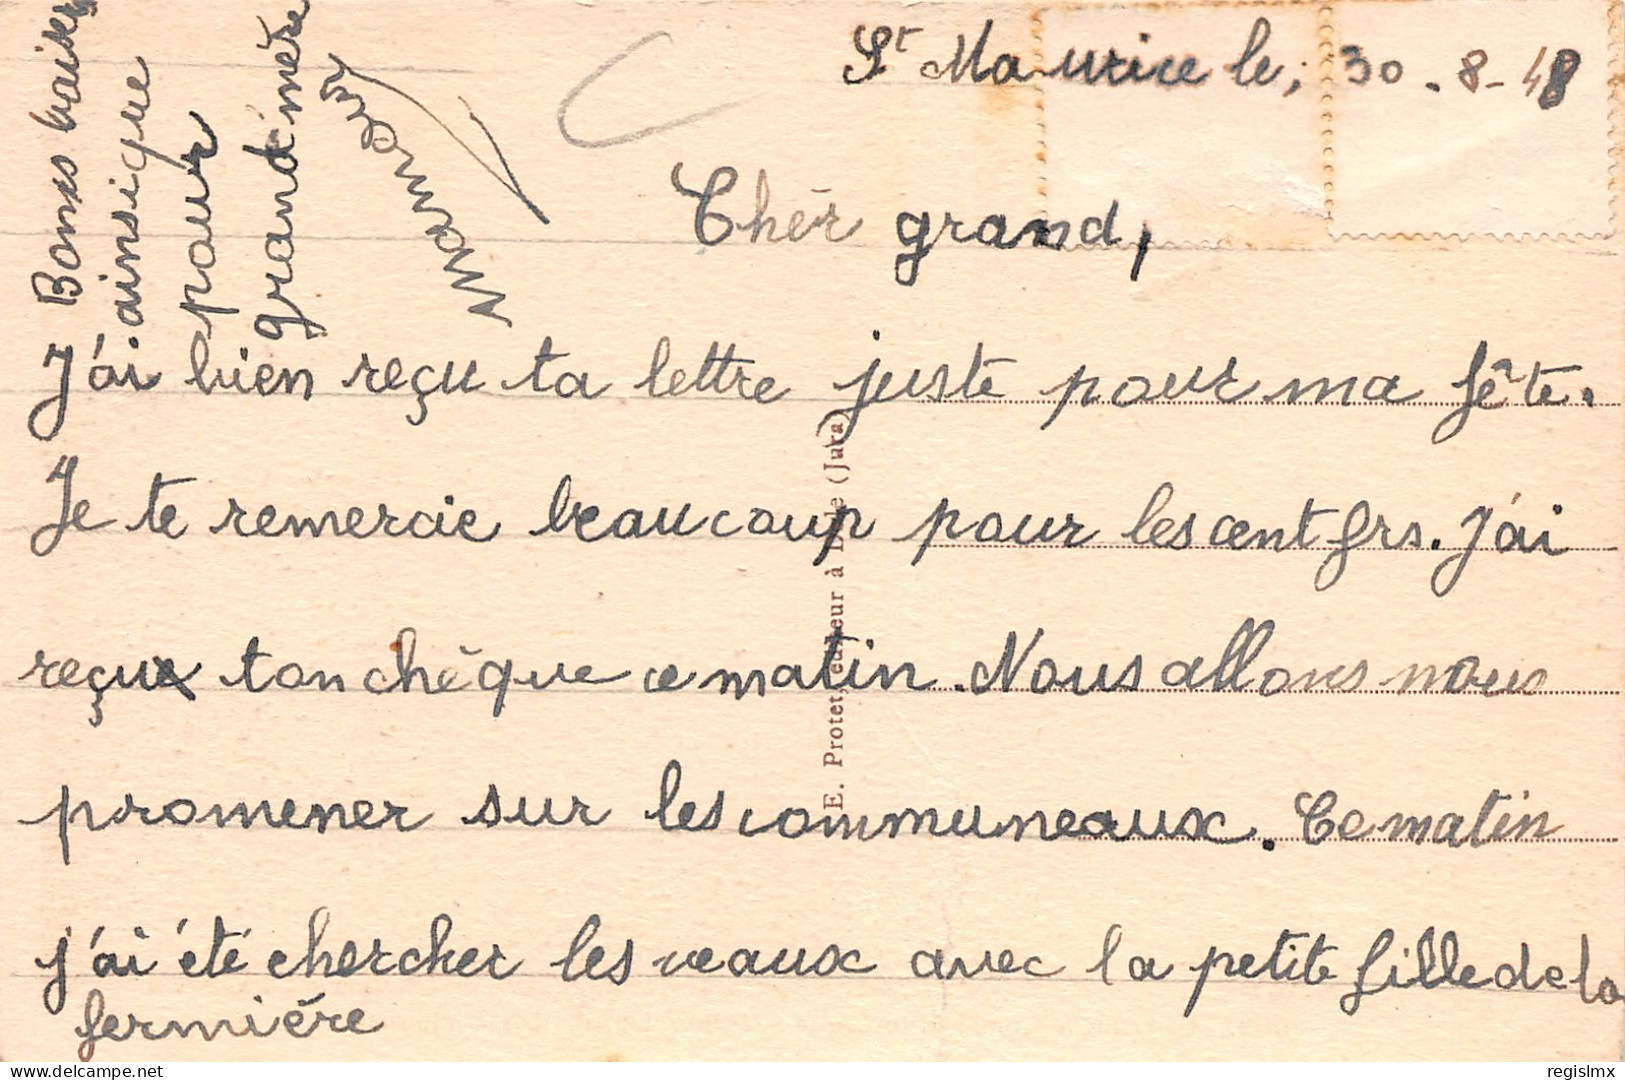 St Maurice le, 30.8-48
Chèr grand,
J'ai bien reçu ta lettre juste pour ma fête.
Je te remercie beaucoup pour les cent frs. J'ai
reçu ton chèque ce matin. Nous allons nous
promener sur les communeaux. Ce matin
j'ai été chercher les veaux avec la petite fille de la
fermière
Bons baisers
ainsi que
pour
grand mère
E. Protet, éditeur à Dole (Jura)
delcampe.net
regislmx